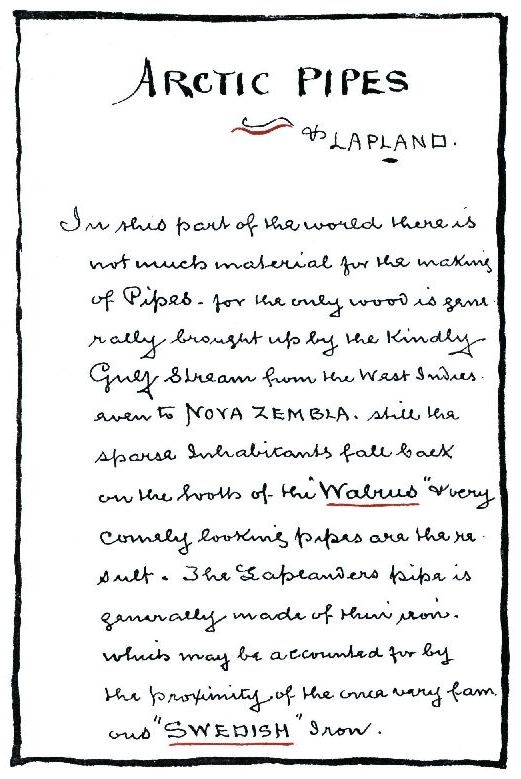 ARCTIC PIPES
& LAPLAND.
In this part of the world there is
not much material for the making
of Pipes - for the only wood is gene
rally brought up by the Kindly
Gulf Stream from the West Indies.
even to NOVA ZEMBLA. still the
sparse Inhabitants fall back
on the tooth of the "Walrus" & very
comely looking pipes are the re
sult. The Laplanders pipe is
generally made of thin iron.
which may be accounted for by
the proximity of the once very fam
ous "SWEDISH" Iron.